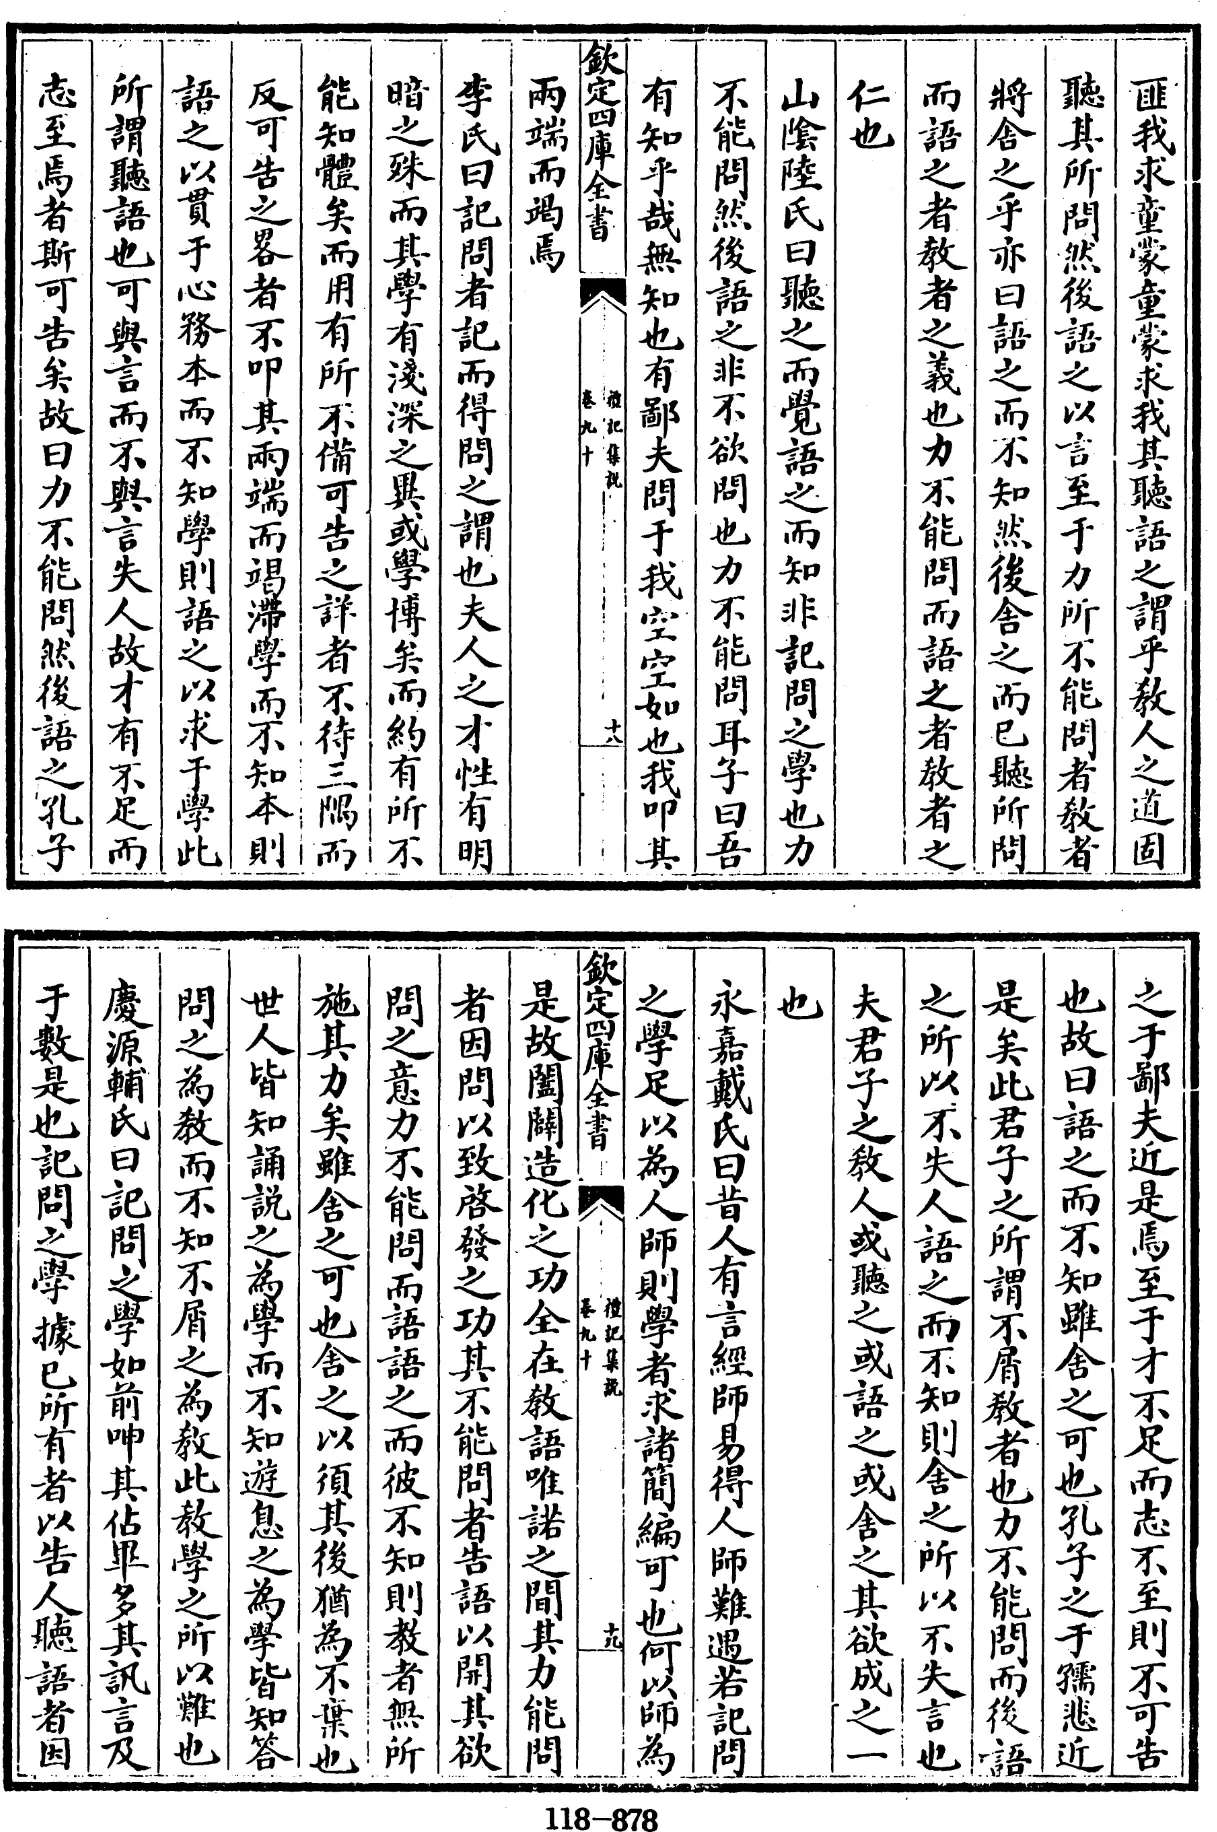 匪我求童蒙童蒙求我其聽語之謂乎教人之道固
聽其所問然後語之以言至于力所不能問者教者
將舍之乎亦曰語之而不知然後舍之而已聽所問
而語之者教者之義也力不能問而語之者教者之
仁也
山陰陸氏曰聽之而覺語之而知非記問之學也力
不能問然後語之非不欲問也力不能問耳子曰吾
有知乎哉無知也有鄙夫問于我空空如也我叩其
欽定四庫全書
禮記集說
卷九十
十八
兩端而竭焉
李氏曰記問者記而得問之謂也夫人之才性有明
暗之殊而其學有淺深之異或學博矣而約有所不
能知體矣而用有所不備可告之詳者不待三隅而
反可告之畧者不叩其兩端而竭滯學而不知本則
語之以貫于心務本而不知學則語之以求于學此
所謂聽語也可與言而不與言失人故才有不足而
志至焉者斯可告矣故曰力不能問然後語之孔子
之于鄙夫近是焉至于才不足而志不至則不可告
也故曰語之而不知雖舍之可也孔子之于孺悲近
是矣此君子之所謂不屑教者也力不能問而後語
之所以不失人語之而不知則舍之所以不失言也
夫君子之教人或聽之或語之或舍之其欲成之一
也
永嘉戴氏曰昔人有言經師易得人師難遇若記問
之學足以為人師則學者求諸簡編可也何以師為
欽定四庫全書
禮記集說
卷九十
十九
是故闔闢造化之功全在教語唯諾之間其力能問
者因問以致啓發之功其不能問者告語以開其欲
問之意力不能問而語語之而彼不知則教者無所
施其力矣雖舍之可也舍之以須其後猶為不棄也
世人皆知誦說之為學而不知遊息之為學皆知答
問之為教而不知不屑之為教此教學之所以難也
慶源輔氏曰記問之學如前呻其佔畢多其訊言及
于數是也記問之學據已所有者以告人聽語者因
118-878